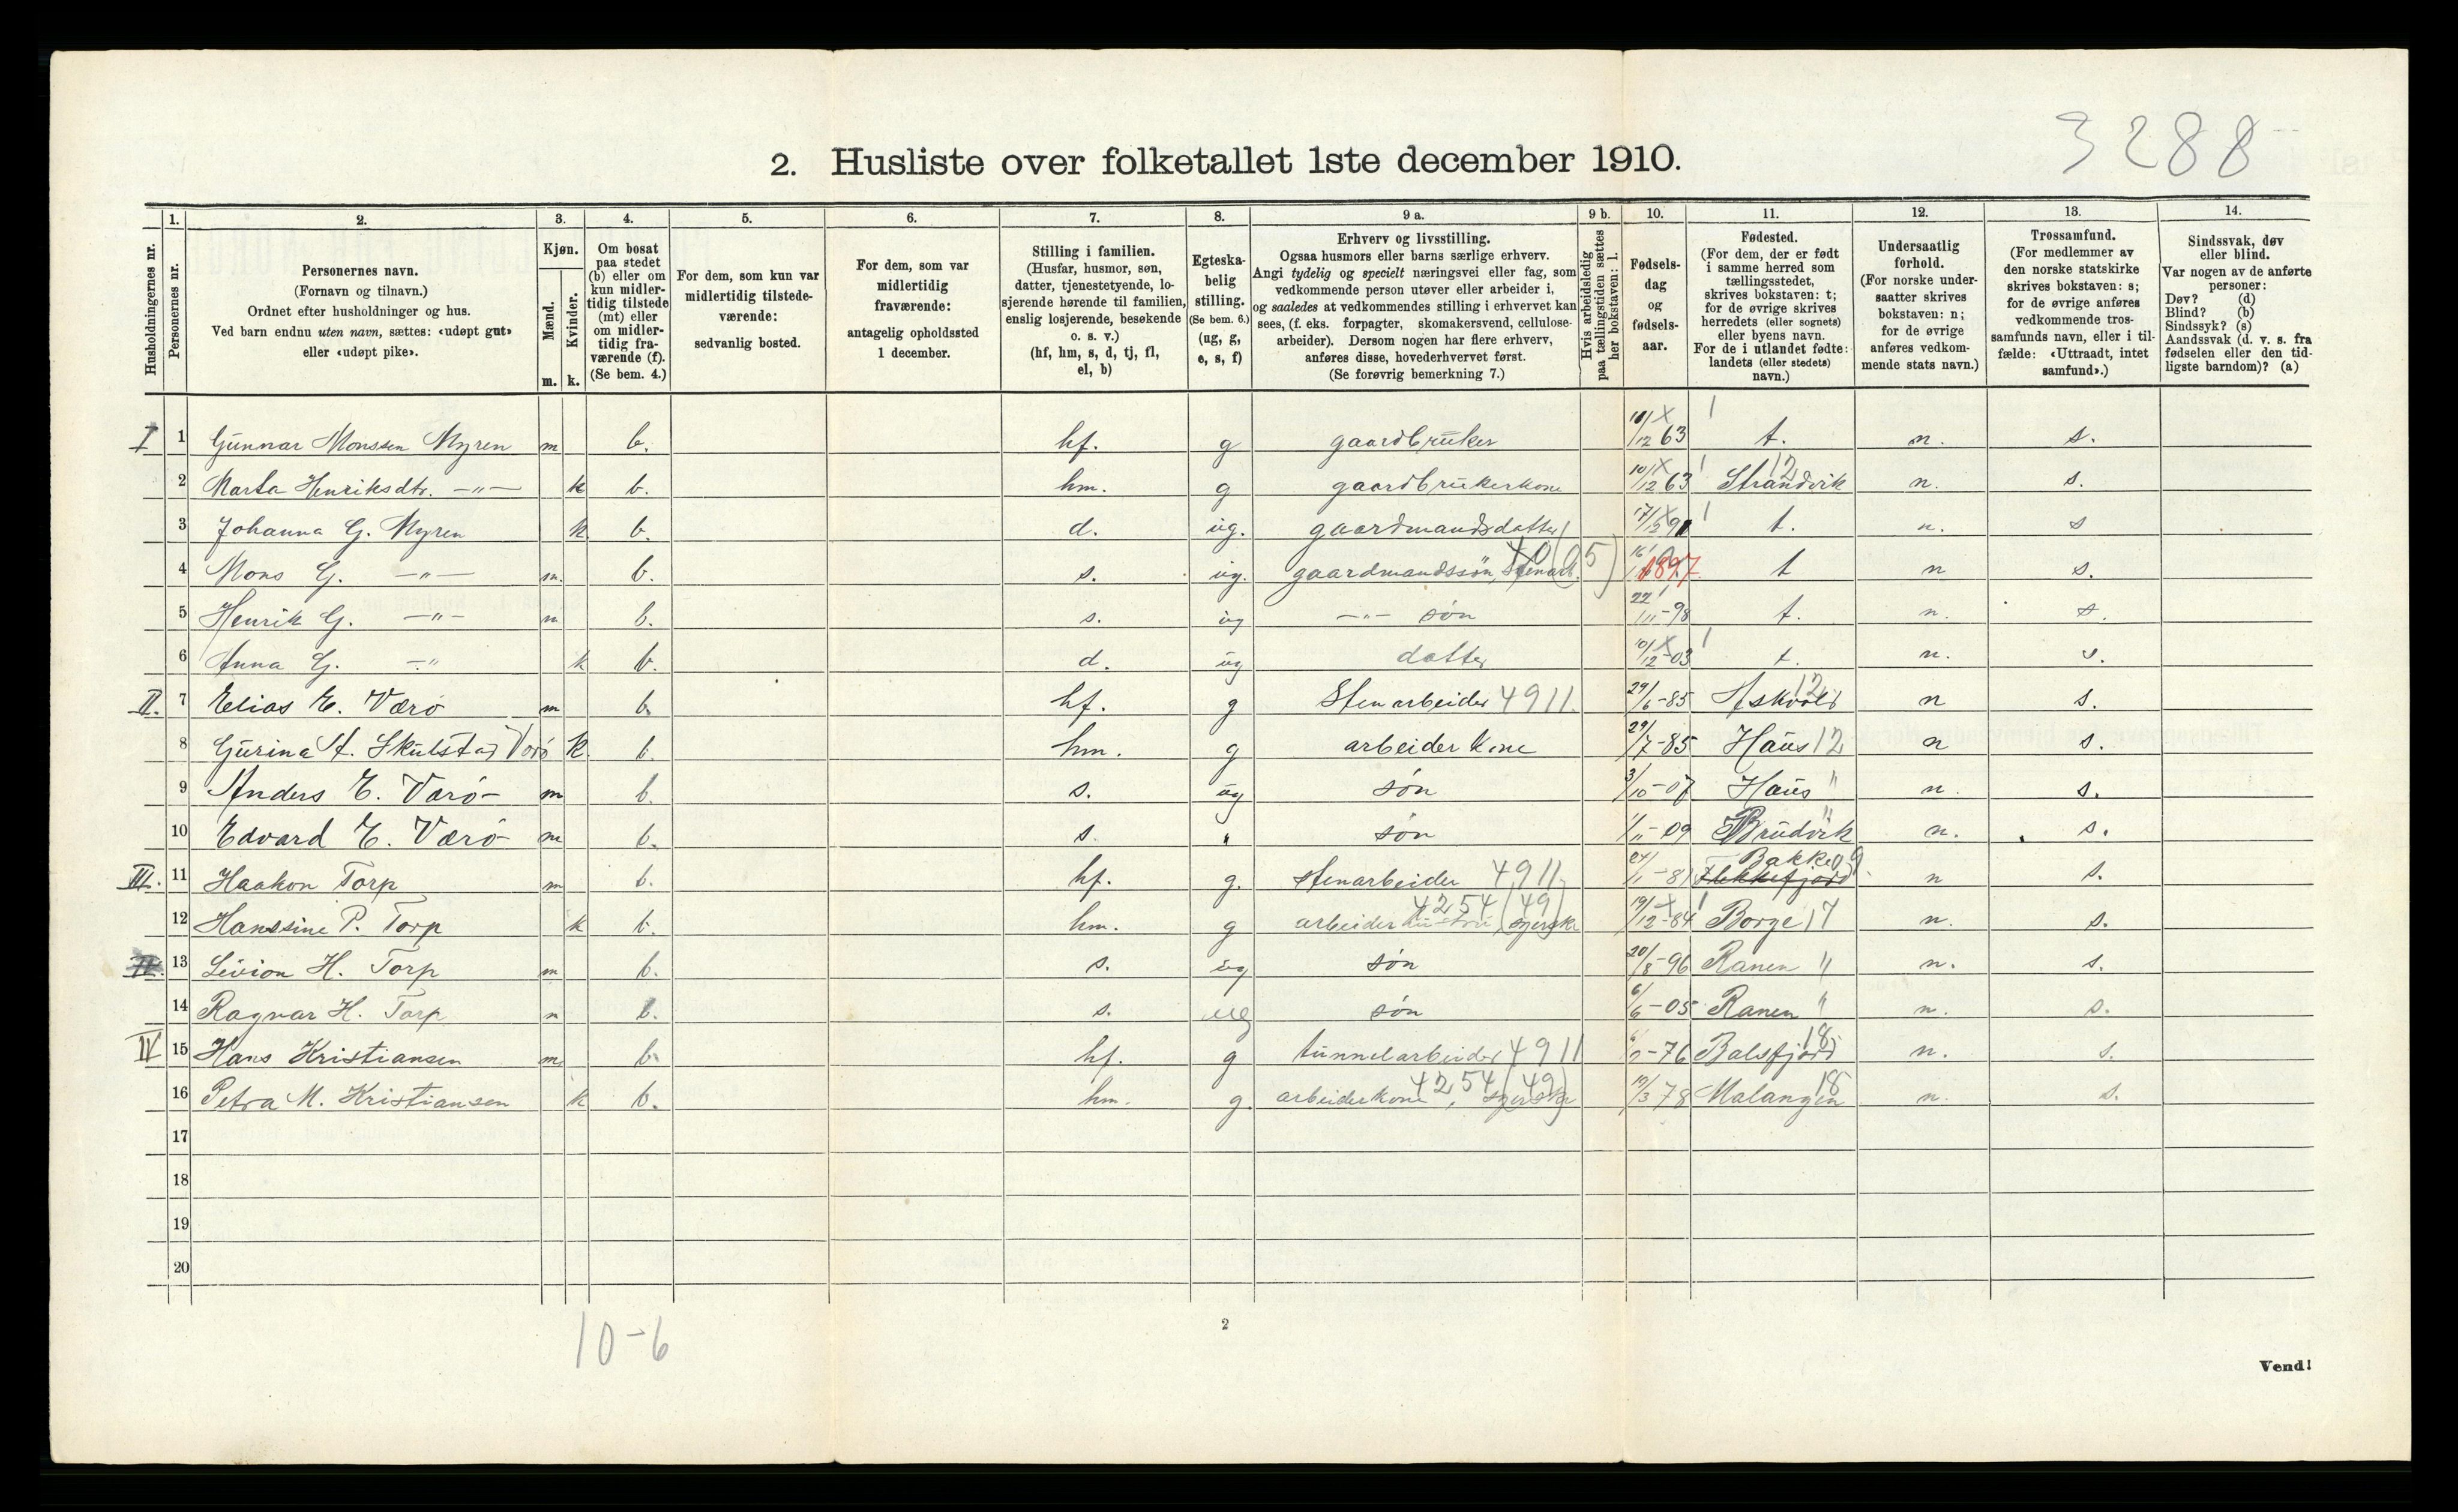 3288
2. Husliste over folketallet 1ste december 1910.
1. 2. 3. 4. 5. 6. 7. 8. 9 a. 9 b. 10. 11. 12. 13. 14.
Husholdningernes nr.
Personernes nr.
Personernes navn.
(Fornavn og tilnavn.)
Ordnet efter husholdninger og hus.
Ved barn endnu uten navn, sættes: «udøpt gut»
eller «udøpt pike».
Kjøn.
Mænd.
Kvinder.
m. k.
Om bosat
paa stedet
(b) eller om
kun midler-
tidig tilstede
(mt) eller
om midler-
tidig fra-
værende (f).
(Se bem. 4.)
For dem, som kun var
midlertidig tilstede-
værende:
sedvanlig bosted.
For dem, som var
midlertidig
fraværende:
antagelig opholdssted
1 december.
Stilling i familien.
(Husfar, husmor, søn,
datter, tjenestetyende, lo-
sjerende hørende til familien,
enslig losjerende, besøkende
o. s. v.)
(hf, hm, s, d, tj, fl,
el, b)
Egteska-
belig
stilling.
(Se bem. 6.)
(ug, g,
e, s, f)
Erhverv og livsstilling.
Ogsaa husmors eller barns særlige erhverv.
Angi tydelig og specielt næringsvei eller fag, som
vedkommende person utøver eller arbeider i,
og saaledes at vedkommendes stilling i erhvervet kan
sees, (f. eks. forpagter, skomakersvend, cellulose-
arbeider). Dersom nogen har flere erhverv,
anføres disse, hovederhvervet først.
(Se forøvrig bemerkning 7.)
Hvis arbeidsledig
paa tællingstiden sættes
her bokstaven: l.
Fødsels-
dag
og
fødsels-
aar.
Fødested.
(For dem, der er født
i samme herred som
tællingsstedet,
skrives bokstaven: t;
for de øvrige skrives
herredets (eller sognets)
eller byens navn.
For de i utlandet fødte:
landets (eller stedets)
navn.)
Undersaatlig
forhold.
(For norske under-
saatter skrives
bokstaven: n;
for de øvrige
anføres vedkom-
mende stats navn.)
Trossamfund.
(For medlemmer av
den norske statskirke
skrives bokstaven: s;
for de øvrige anføres
vedkommende tros-
samfunds navn, eller i til-
fælde: «Uttraadt, intet
samfund».)
Sindssvak, døv
eller blind.
Var nogen av de anførte
personer:
Døv? (d)
Blind? (b)
Sindssyk? (s)
Aandssvak (d. v. s. fra
fødselen eller den tid-
ligste barndom)? (a)
I 1 Gunnar Monssen Myren m b. hf. g gaardbruker 10/12 63 t. n. s.
2 Marta Henriksdtr. —"— k b. hm. g gaardbrukerkone 10/12 63 Strandvik 12 n. s.
3 Johanna G. Myren k. b. d. ug. gaardmandsdatter 17/12 91 t. n. s
4 Mons G. —"— m. b. s. ug. gaardmandssøn, stenarb. 40(05) 1897 t n s.
5 Henrik G. —"— m b. s. ug —"— søn 22/11-98 t. n. s.
6 Anna G. —" k b. d. ug datter 10/12-03 t. n. s.
II. 7 Elias E. Værø m b. hf. g Stenarbeider 4911. 29/6-85 Askvold 12 n s.
8 Gurina A. Skulstad Værø k. b. hm. g arbeider kone 29/7-85 Haus 12 n s.
9 Anders E. Værø m b. s. ug søn 3/10-07 Haus " n. s.
10 Edvard E. Værø m b. s. " søn 1/11-09 Brudvik " n. s.
III. 11 Haakon Torp m b. hf. g. stenarbeider 4911. 24/1-81 Flekkefjord Bakke 09 n s.
12 Hanssine P. Torp k b. hm. g arbeider hustru, syerske 4254 (49) 19/12-84 Borge 17 n. s.
IV. 13 Livion H. Torp m b. s. ug søn 20/8-96 Ranen " n. s.
14 Ragnar H. Torp m b. s. ug søn 6/6-05 Ranen " n. s.
IV 15 Hans Kristiansen m b. hf. g tunnelarbeider 4911 -76 Balsfjord 18 n. s.
16 Petra M. Kristiansen k b. hm. g. arbeiderkone, syerske 4254 (49) 19/3 78 Malangen 18 n. s.
17
18
19
20
10-6
2
Vend!